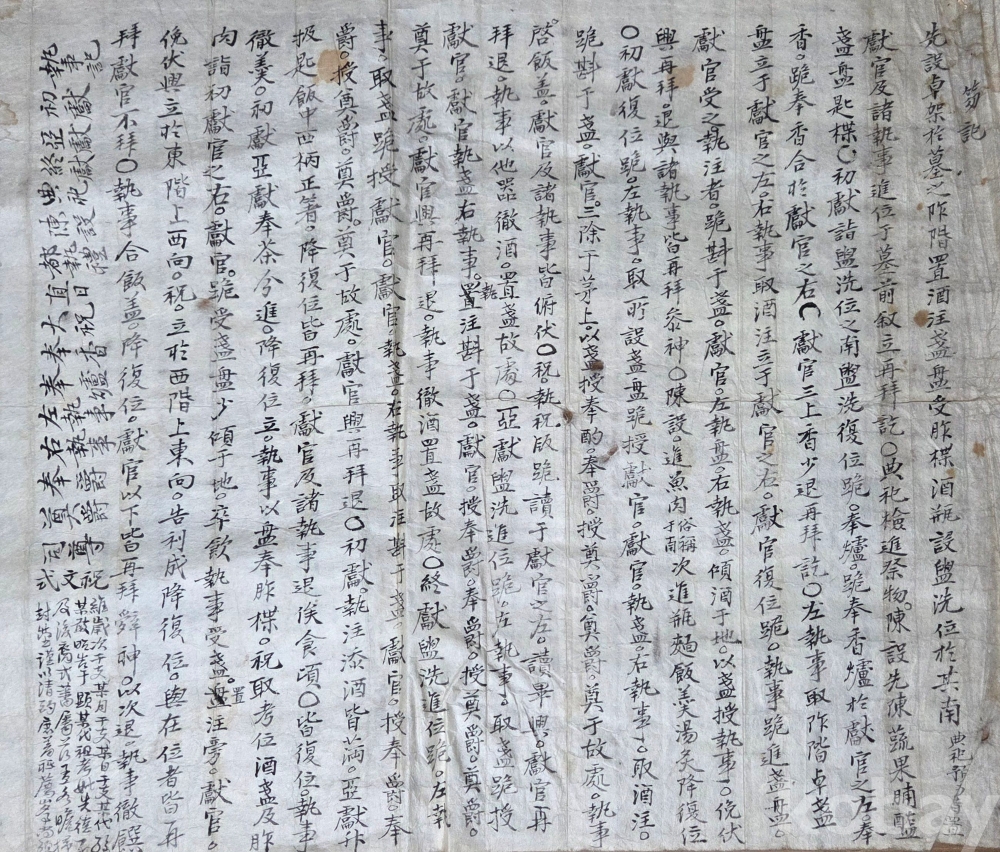 笏記
先設卓架於墓之阼階置酒注盞盤受胙楪酒瓶設盥洗位於其南
獻官及諸執事進位于墓前敘立再拜訖〇典祀檢進祭物。陳設先陳蔬果脯醢
盞盤匙楪〇初獻詣盥洗位之南盥洗復位跪。奉爐。跪奉香爐於獻官之左。奉
香。跪奉香合於獻官之右〇獻官三上香少退再拜訖〇左執事取阼階卓盞
盤立于獻官之左。右執事取酒注立于獻官之右。獻官復位跪。執事跪進盞盤。
獻官受之執注者。跪斟于盞。獻官。左執盤。右執盞。傾酒于地。以盞授執事。俛伏
興再拜。退與諸執事皆再拜參神〇陳設。進魚肉俗稱于南次進瓶麵飯羹湯炙降復位
〇初獻復位跪。左執事。取所設盞盤跪授獻官。獻官。執盞。右執事。取酒注。
跪斟于盞。獻官。三除于茅上。以盞授奉酌。奉爵。授奠爵。奠爵。奠于故處。執事
啓飯盖。獻官及諸執事皆俯伏〇祝。執祝版跪讀于獻官之左。讀畢興。獻官再
拜退。執事以他器徹酒。置盞故處〇亞獻盥洗進位跪。左執事。取盞跪授
獻官。獻官執盞右執事。執注斟于盞。獻官。授奉爵。奉爵。授奠爵。奠爵。
奠于故處。獻官興再拜退。執事徹酒置盞故處〇終獻盥洗進位跪。左執
事。取盞跪授獻官。獻官。執盞。右執事取注斟于盞。獻官。授奉爵。奉
爵。授奠爵。奠爵。奠于故處。獻官興再拜退〇初獻。執注添酒皆滿。亞獻
扱匙飯中西柄正箸。降復位皆再拜。獻官及諸執事退俟食頃〇皆復位。執事
徹羹。初獻亞獻奉茶分進。降復位立。執事以盤奉胙楪。祝取考位酒盞及胙
肉詣初獻官之右。獻官。跪受盞盤少傾于地。卒飲執事受盞。置盤注旁。獻官。
俛伏興立於東階上西向。祝。立於西階上東向。告利成降復位。與在位者皆再
拜獻官不拜〇執事合飯盖。降復位。獻官以下皆再拜辭神。以次退。執事徹饌
初獻
亞獻
終獻
典祀
陳設
都執禮
直日
大祝
奉香
奉爐
左執事
右執事
奉爵
奠爵
司尊
祝文式